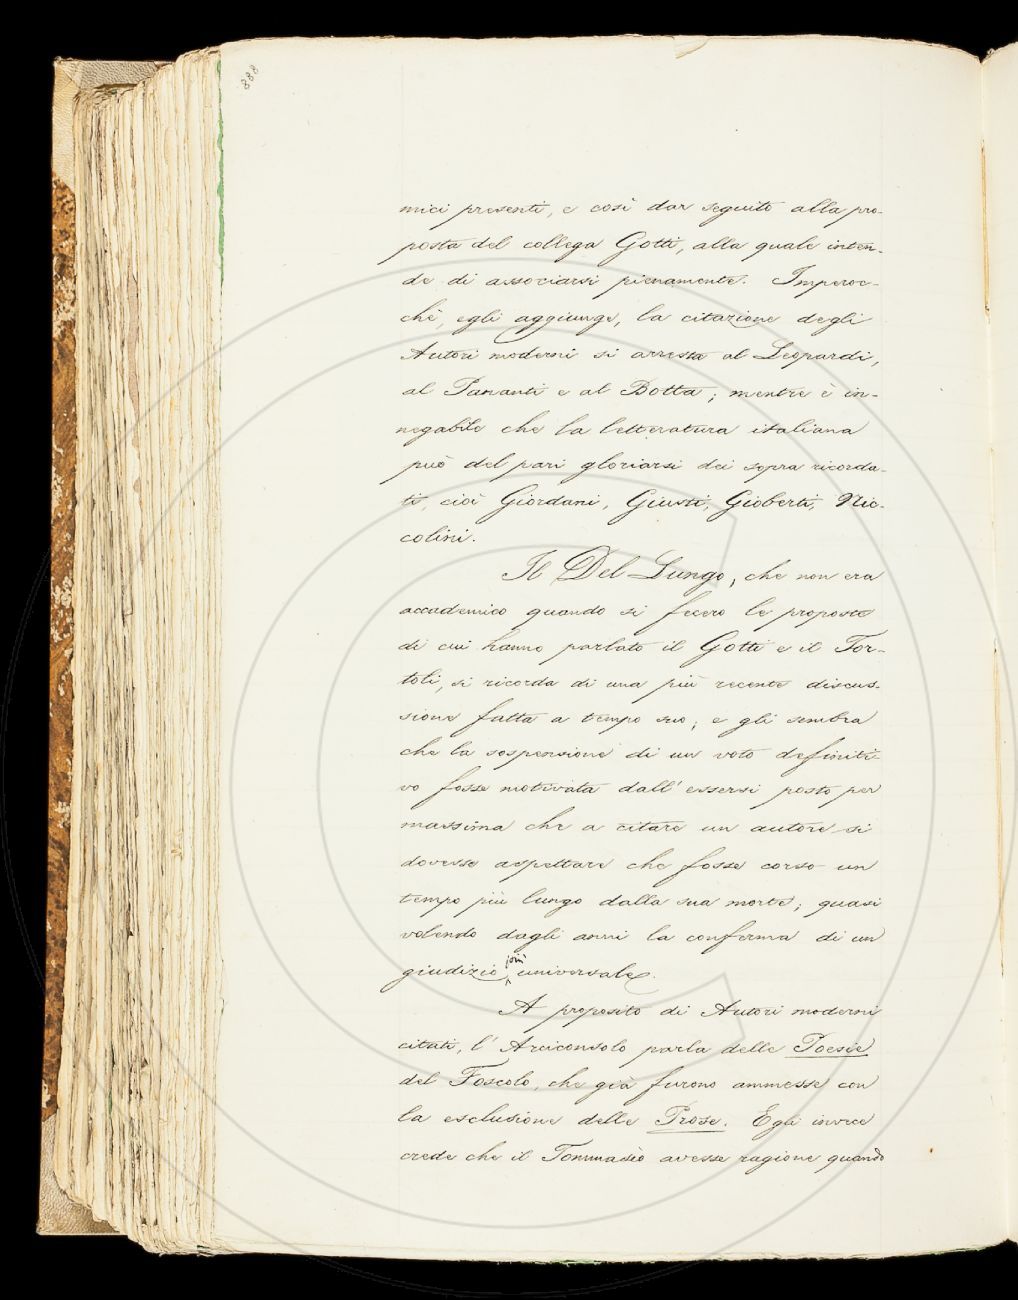 888
mici presenti, e così dar seguito alla pro-
posta del collega Gotti, alla quale inten-
de di associarsi pienamente. Imperoc-
chè, egli aggiunge, la citazione degli
Autori moderni si arresta al Leopardi,
al Pananti e al Botta; mentre è in-
negabile che la letteratura italiana
può del pari gloriarsi dei sopra ricorda-
ti, cioè Giordani, Giusti, Gioberti, Nic-
colini.
Il Del Lungo, che non era
accademico quando si fecero le proposte
di cui hanno parlato il Gotti e il Tor-
toli, si ricorda di una più recente discus-
sione fatta a tempo suo; e gli sembra
che la sospensione di un voto definiti-
vo fosse motivata dall'essersi posto per
massima che a citare un autore si
dovesse aspettare che fosse corso un
tempo più lungo dalla sua morte; quasi
volendo dagli anni la conferma di un
giudizio più universale.
A proposito di Autori moderni
citati, l'Arciconsolo parla delle Poesie
del Foscolo, che già furono ammesse con
la esclusione delle Prose. Egli invece
crede che il Tommasèo avesse ragione quando